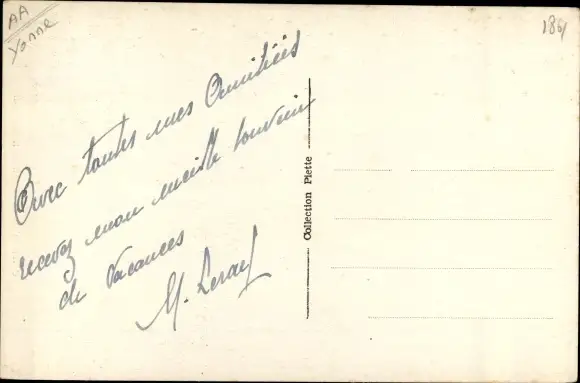 AA
Yonne
Avec toutes mes Amitiés
recevez mon meille souvenir
de Vacances
M.
Collection Piette